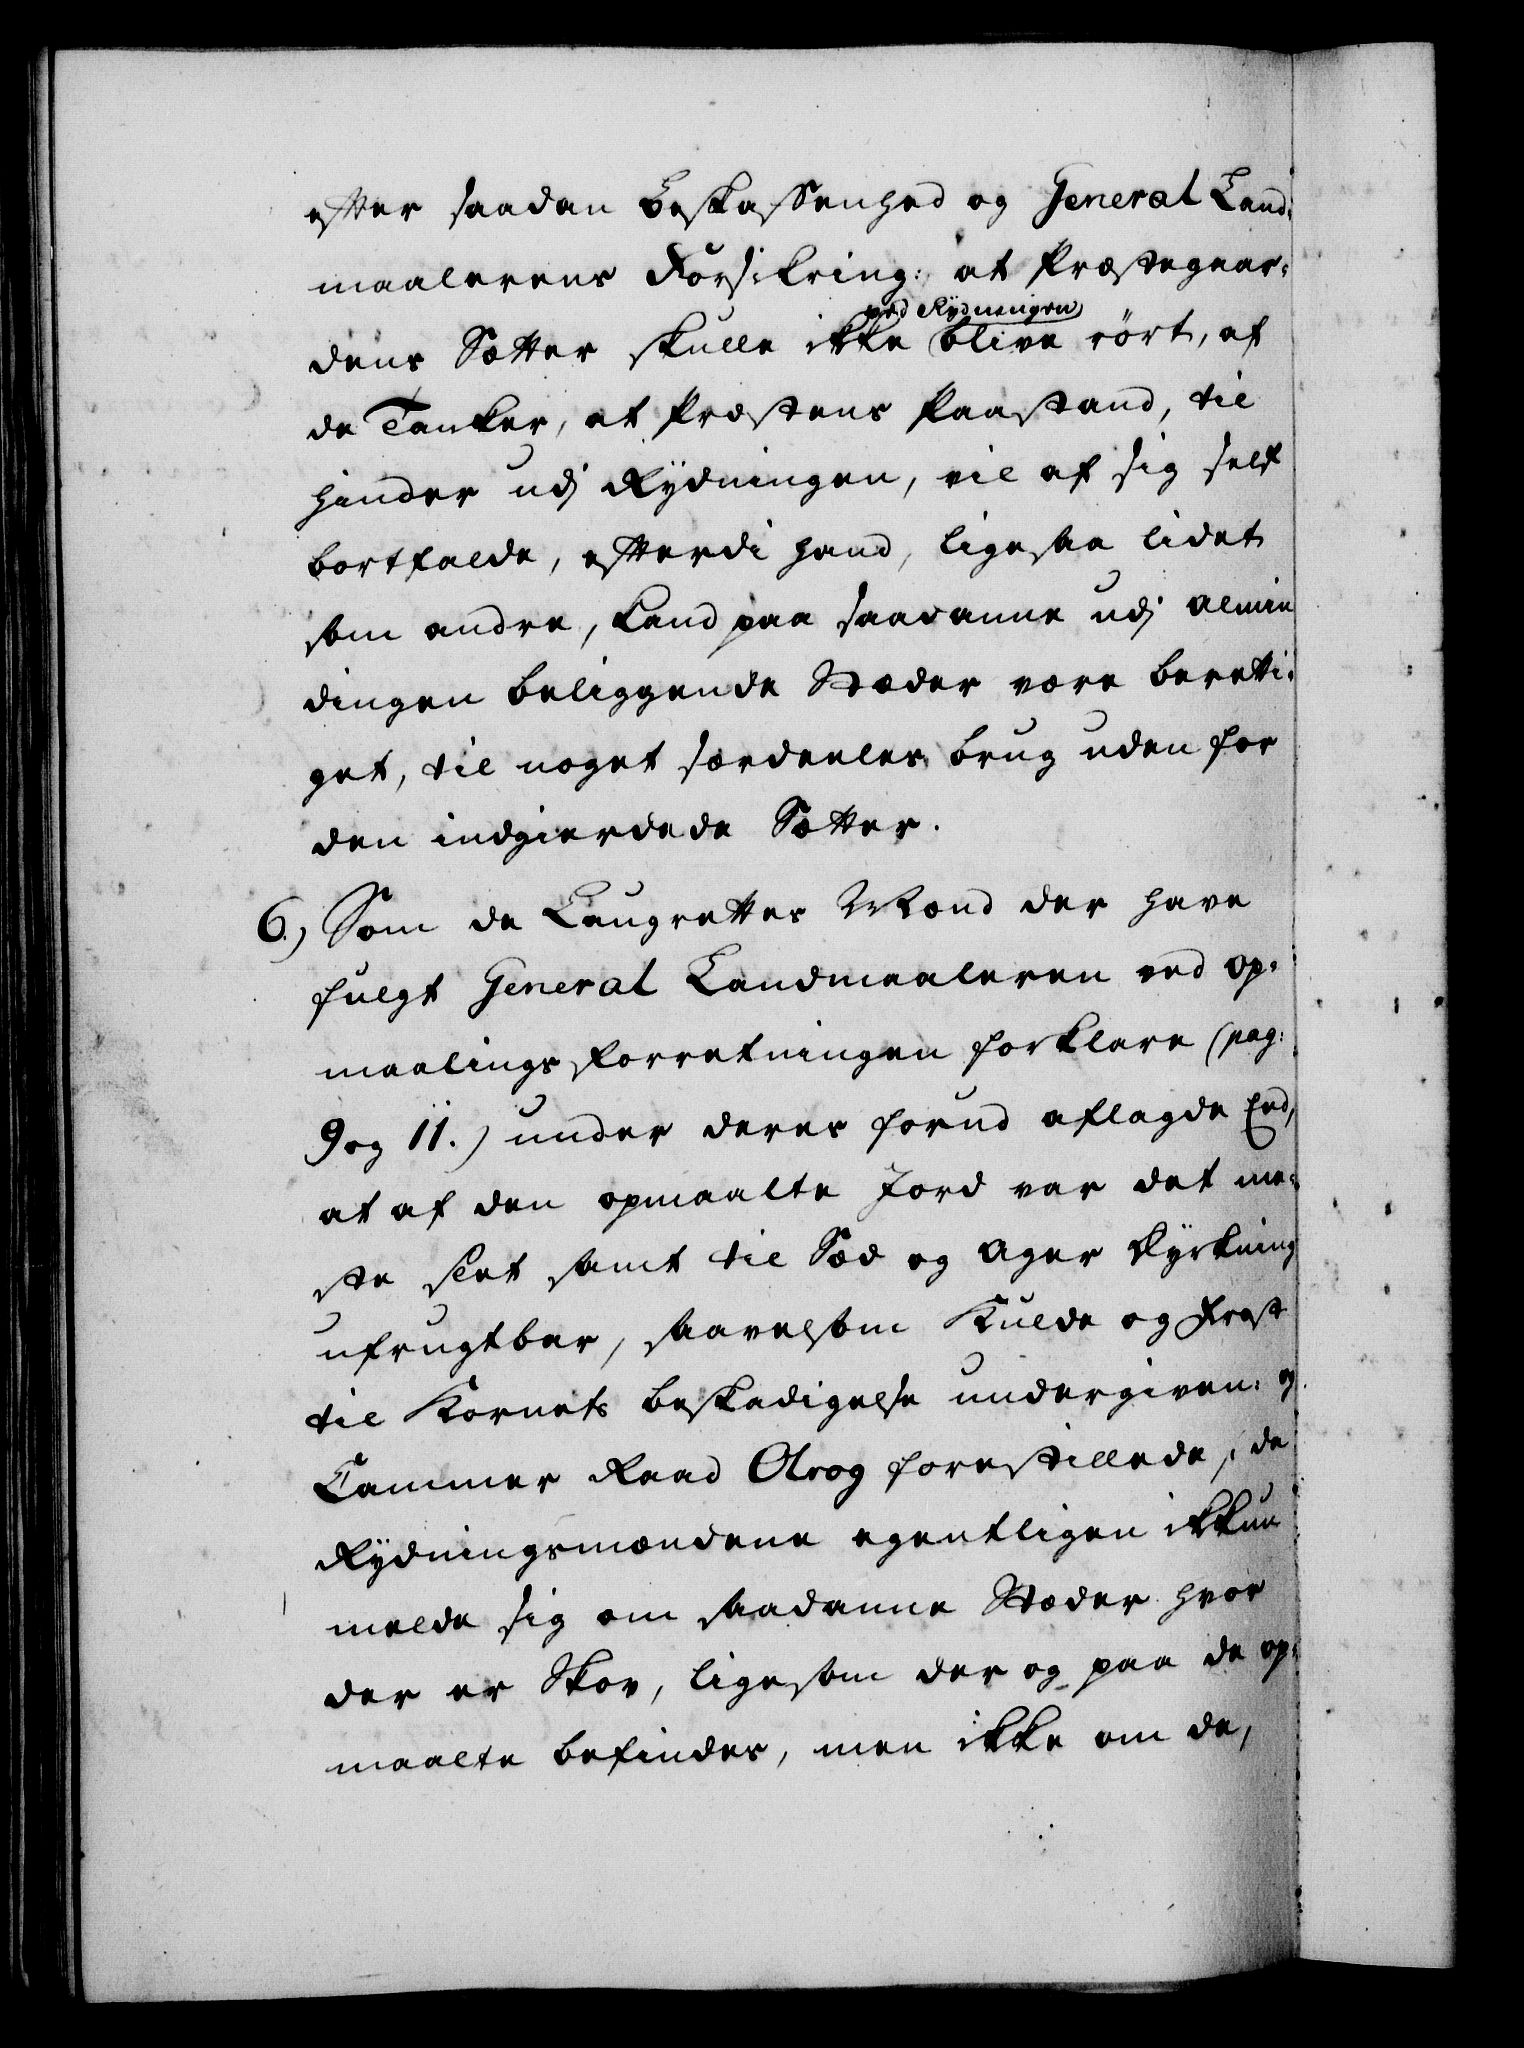 efter saadan Beskaffenhed og General Land-
maalerens Forsikring: at Præstegaar-
ved Rydningen
dens Sætter skulle ikke blive rørt, af
de Tanker, at Præstens Paastand, til
hinder udj Rydningen, vil af sig self
bortfalde, efterdi hand, ligesaa lidet
som andre, kand paa saadanne udj Almin
dingen beliggende Stæder være beretti-
get, til noget særdeeles brug uden for
den indgierdede Sætter.
6.) Som de Laugrettes Mænd der have
fulgt General Landmaaleren ved Op-
maalings Forretningen forklare (pag:
9 og 11.) under deres forud aflagde Eed,
at af den opmaalte Jord var det me-
ste slet samt til Sæd og Ager Dyrkning
ufrugtbar, saavelsom Kulde og Frost
til Kornets beskadigelse undergiven: og
Cammer Raad Olrog forestillede, de
Rydningsmændene egentligen ikkun
melde sig om saadanne Stæder hvor
der er Skov, ligesom der og paa de op-
maalte befindes, men ikke om de,